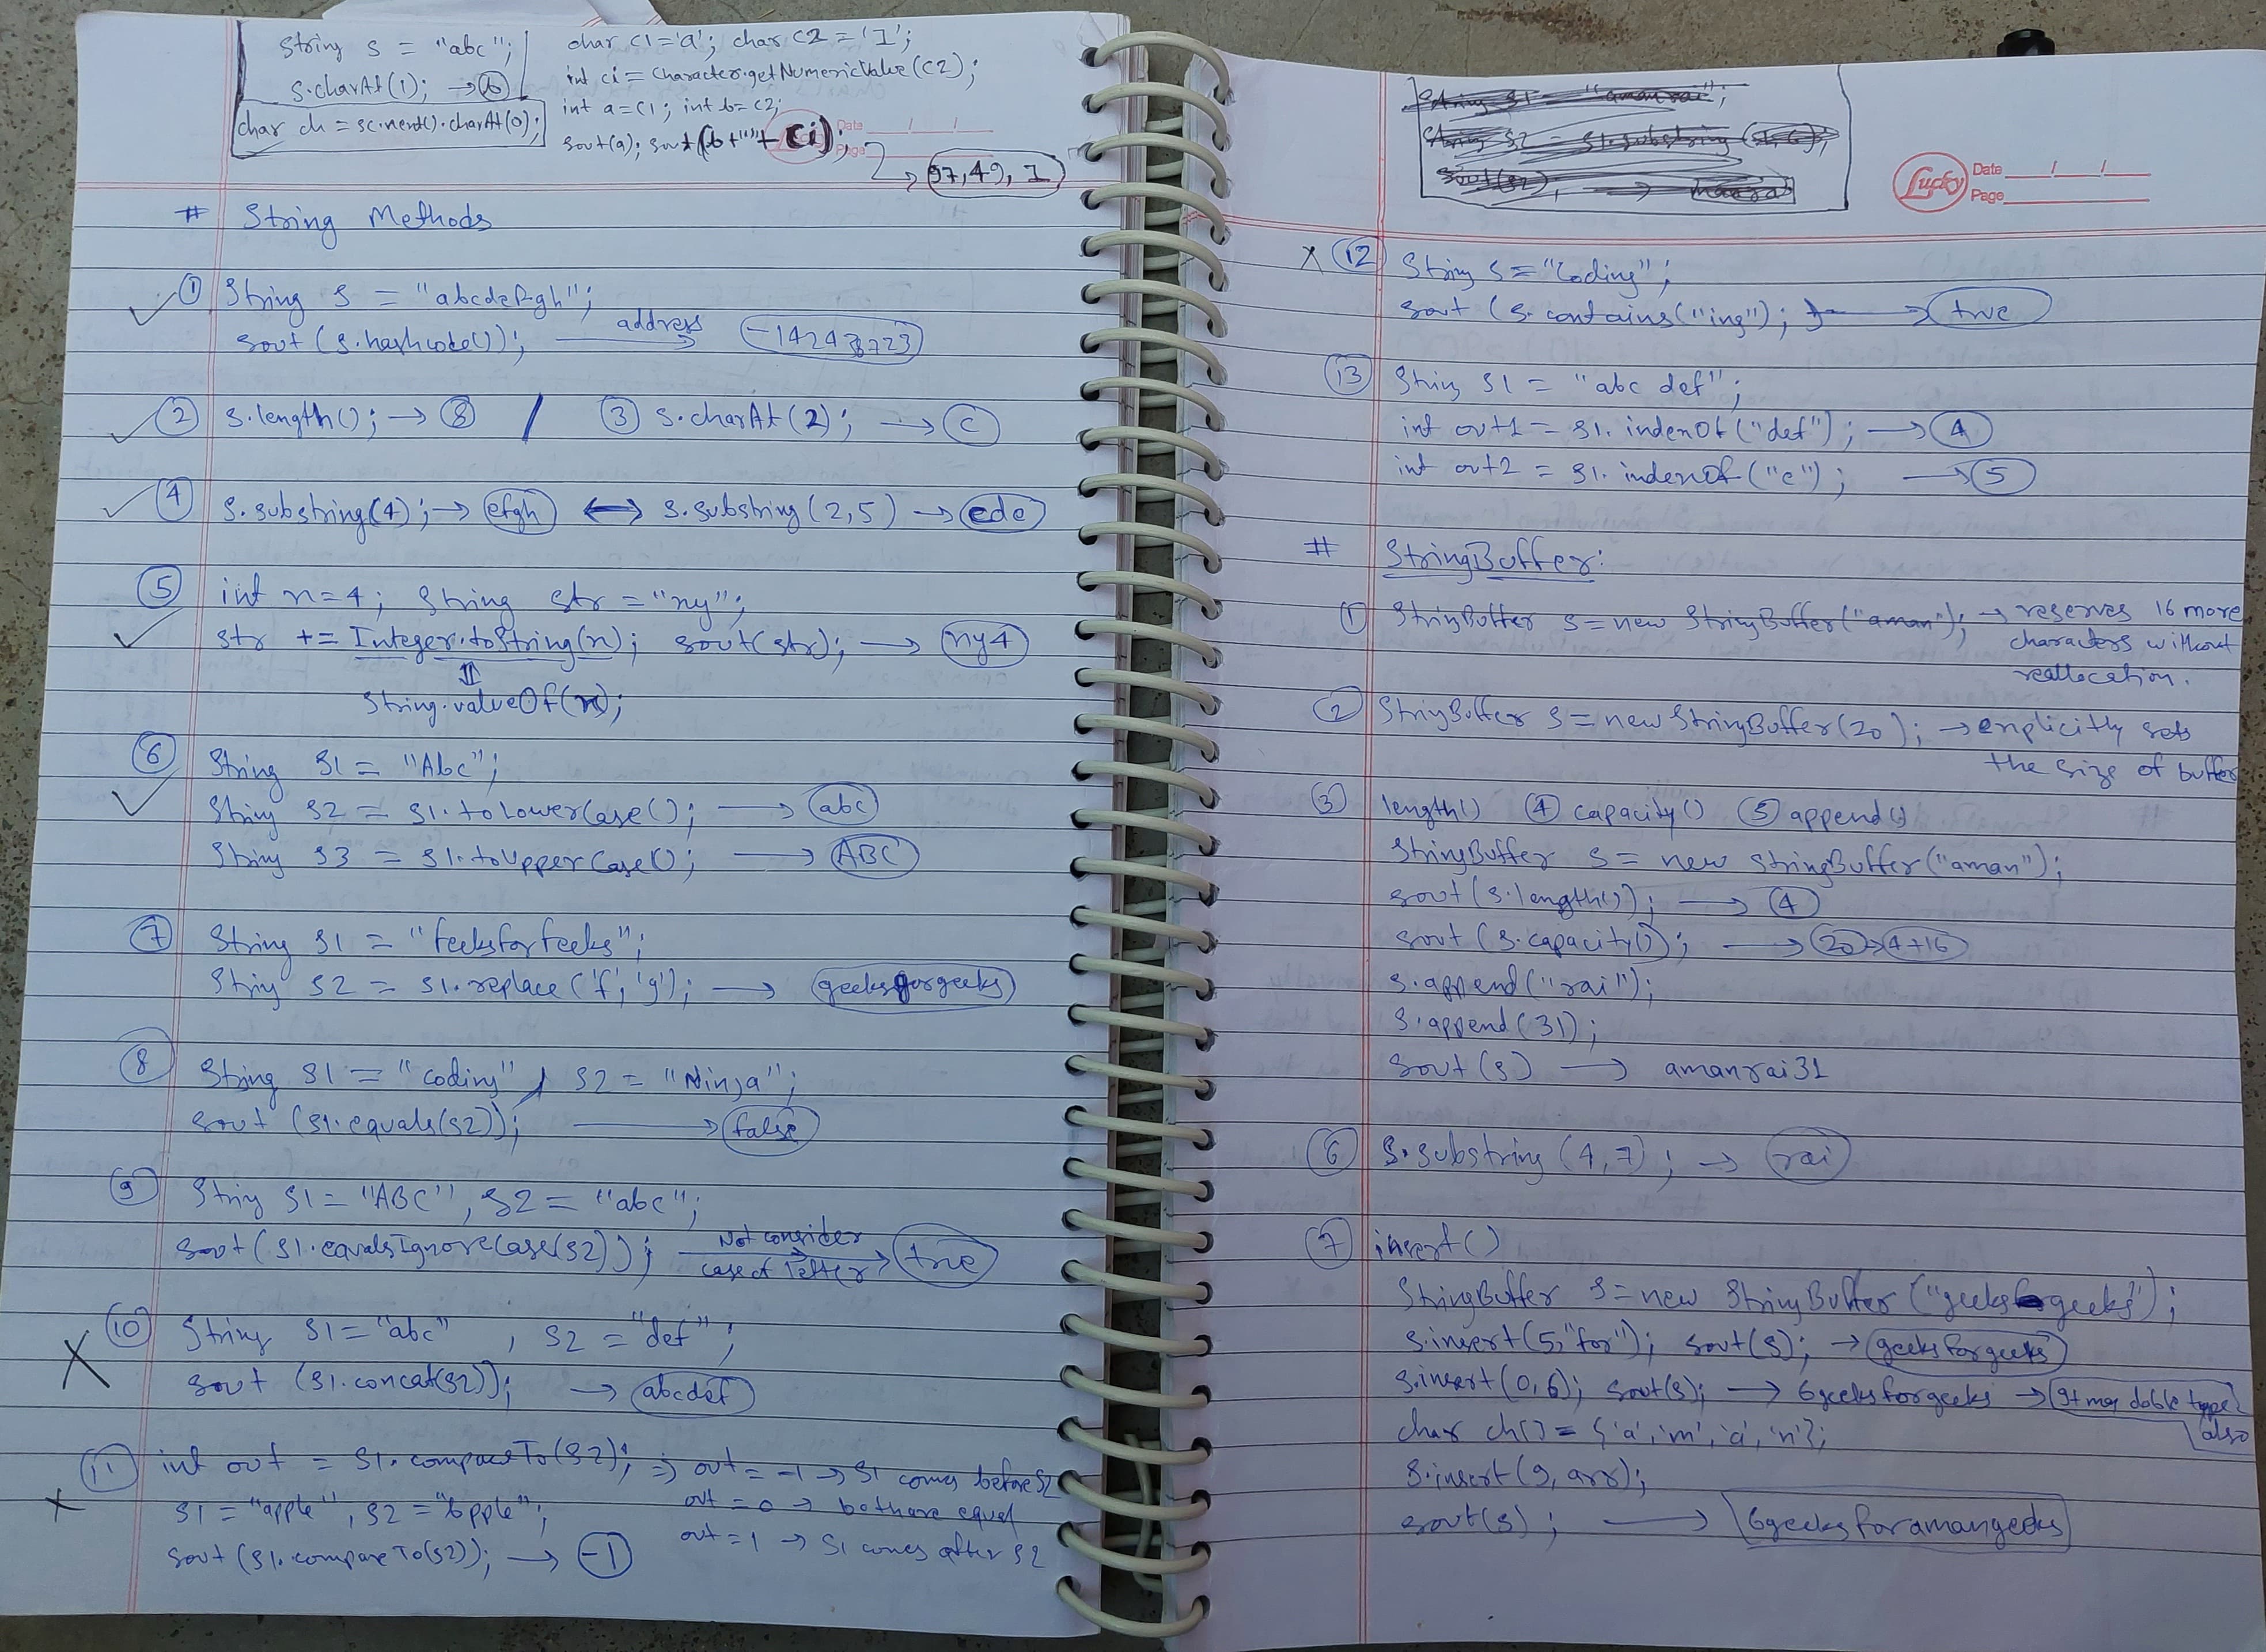 String s = "abc";
s.charAt(1); → b
char ch = sc.next().charAt(0);
char c1='a'; char c2='1';
int ci = Character.getNumericValue(c2);
int a=c1; int b=c2;
sout(a); sout(b+" "+ci);
→ 97,49, 1
Date / /
Page
# String Methods
① String s = "abcdefgh";
sout(s.hashcode()); address →
② s.length(); → 8 / ③ s.charAt(2); → c
④ s.substring(4); → efgh ↔ s.substring(2,5) → cde
⑤ int x=4; String str = "xy";
str += Integer.toString(x); sout(str); → xy4
⇕
String.valueOf(x);
⑥ String s1 = "Abc";
String s2 = s1.toLowerCase(); → abc
String s3 = s1.toUpperCase(); → ABC
⑦ String s1 = "feeksforfeeks";
String s2 = s1.replace('f','g'); → geeksgorgeeks
⑧ String s1 = "coding", s2 = "Ninja";
sout (s1.equals(s2)); → false
⑨ String s1 = "ABC", s2 = "abc";
sout(s1.equalsIgnoreCase(s2)); Not consider case of letter → true
⑩ String s1 = "abc" , s2 = "def" ;
sout (s1.concat(s2)); → abcdef
⑪ int out = s1.compareTo(s2); ⇒ out = -1 → s1 comes before s2
out = 0 → both are equal
s1 = "apple", s2 = "bpple";
out = 1 → s1 comes after s2
sout (s1.compareTo(s2)); → -1
String s1 = "aman rai";
String s2 = s1.substring(1,6);
sout(s2); →
Lucky
Date / /
Page
X ⑫ String s = "Coding";
sout (s.contains("ing"); → true
⑬ String s1 = "abc def";
int out1 = s1.indexOf("def"); → 4
int out2 = s1.indexOf("e"); → 5
# StringBuffer:
① StringBuffer s = new StringBuffer("aman"); → reserves 16 more
characters without
reallocation.
② StringBuffer s = new StringBuffer(20); → explicitly sets
the size of buffer
③ length() ④ capacity() ⑤ append()
StringBuffer s = new StringBuffer("aman");
sout(s.length()); → 4
sout (s.capacity()); → 20 → 4+16
s.append("rai");
s.append(31);
sout (s) → amanrai31
⑥ s.substring (4,7); → rai
⑦ insert()
StringBuffer s = new StringBuffer ("geeksgeeks");
s.insert(5,"for"); sout(s); → geeksforgeeks
s.insert(0,6); sout(s); → 6geeksforgeeks → It may doble type
also
char ch[] = {'a','m','a','n'};
s.insert(9, arr);
sout(s); → 6geeksforamangeeks